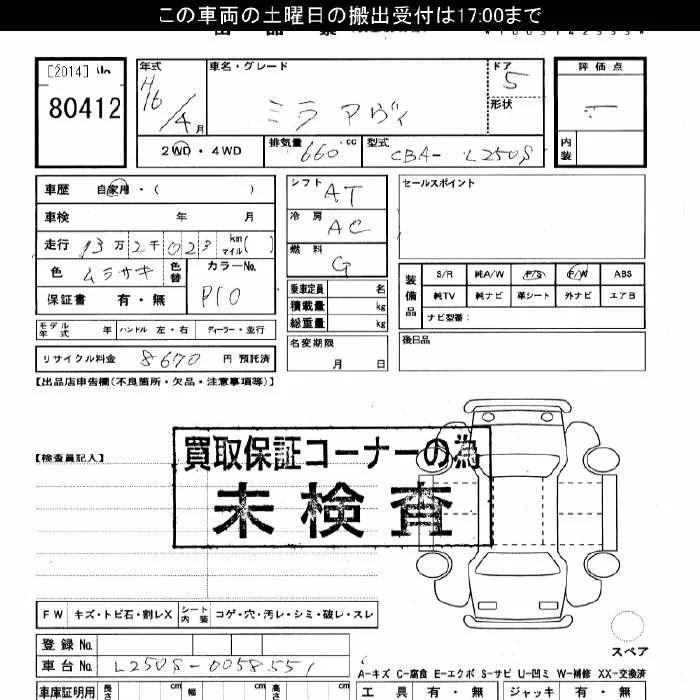 この車両の土曜日の搬出受付は17:00まで
[2014]
80412
年式 H16/4月
車名・グレード ミラ アヴィ
ドア 5
形状
評価点
内装
2WD・4WD
排気量 660 cc
型式 CBA-L250S
車歴 自家用・( )
シフト AT
セールスポイント
車検 年 月
冷房 AC
走行 13万2千023 km マイル( )
燃料 G
色 ムラサキ 色替
カラーNo. P10
装備品
S/R 純A/W P/S P/W ABS
純TV 純ナビ 革シート 外ナビ エアB
ナビ型番:
保証書 有・無
乗車定員 名
積載量 kg
総重量 kg
モデル年式 年 ハンドル 左・右 ディーラー・並行
名変期限 月 日
後日品
リサイクル料金 8670 円 預託済
【出品店申告欄(不良箇所・欠品・注意事項等)】
【検査員記入】
買取保証コーナーの為
未検査
FW キズ・トビ石・割レX シート内装 コゲ・穴・汚レ・シミ・破レ・スレ
登録No.
スペア
車台No. L250S-0058551
A-キズ C-腐食 E-エクボ S-サビ U-凹ミ W-補修 XX-交換済
車庫証明用 長さ cm 幅 cm 高さ cm
工具 有・無 ジャッキ 有・無